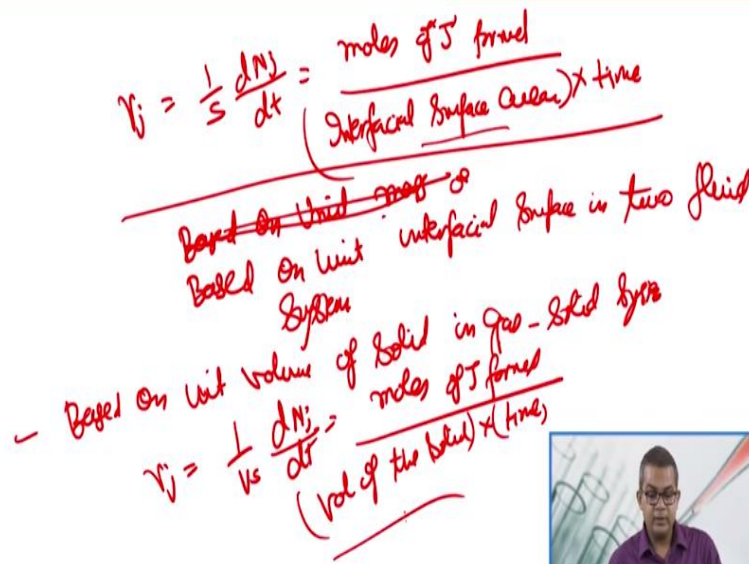 rj = 1/S dNj/dt = moles of J formed / (Interfacial Surface area) × time
Based on Unit mass of
Based on Unit interfacial Surface in two fluid
System
- Based on Unit volume of Solid in Gas-Solid
rj = 1/Vs dNj/dt = moles of J formed / (vol of the Solid) × (time)